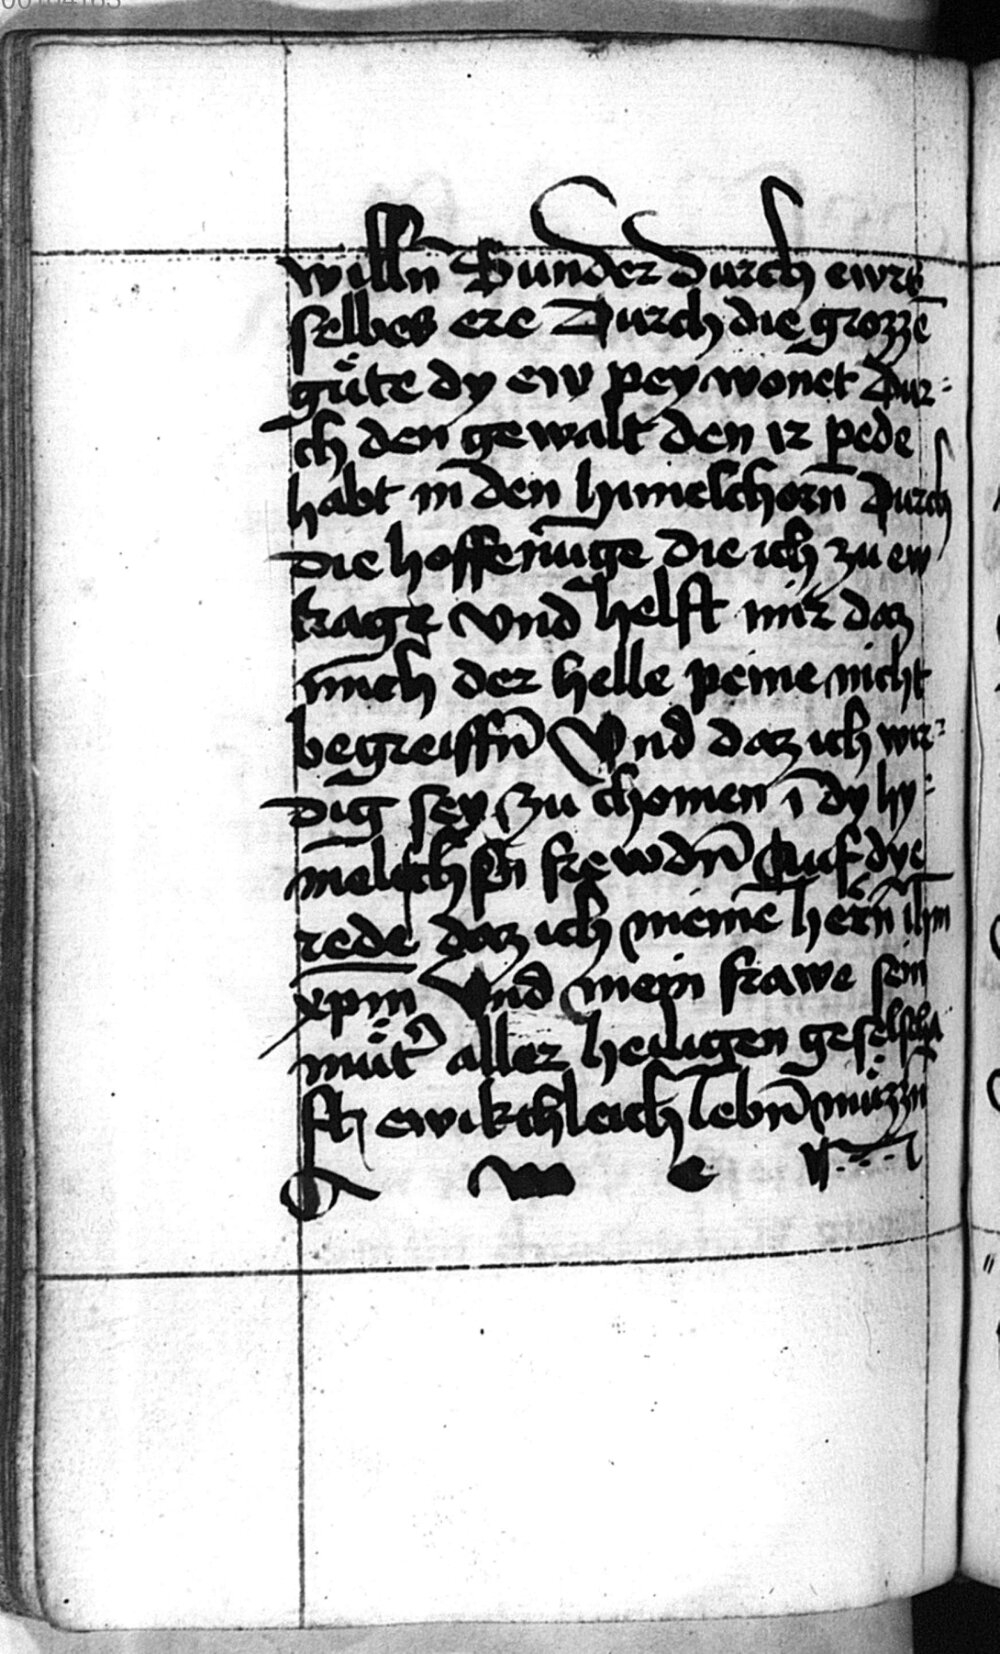 willn̄ Sunder durch ewrs
selbes ere Durch die grozzē
gůte dy ew pey wonet Dur⸗
ch den gewalt den ir pede
habt in den himelchorn̄ Durch
die hoffenūge die ich zu ew
trage vnd helft mir daz
mich der helle peine nicht
begreiffn̄ Vnd daz ich wir⸗
dig sey zu chomen ī dy hy⸗
melischn̄ frewdn̄ Auf dye
rede daz ich meinē hern̄ ihm̄
xpm̄ Vnd mein frawe sein
můtˀ aller heiligen geselscha
ft ewikchleich lebn̄ můzzn̄
A m e n